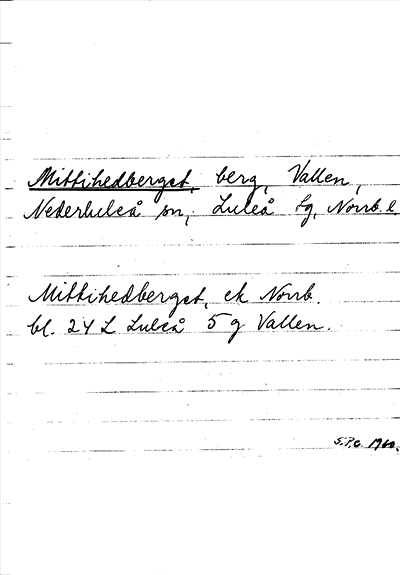 Mittihedberget, berg, Vallen,
Nederluleå sn, Luleå tg, Norrb. l.
Mittihedberget, ek Norrb.
bl. 24 L Luleå 5 g Vallen.
1960.